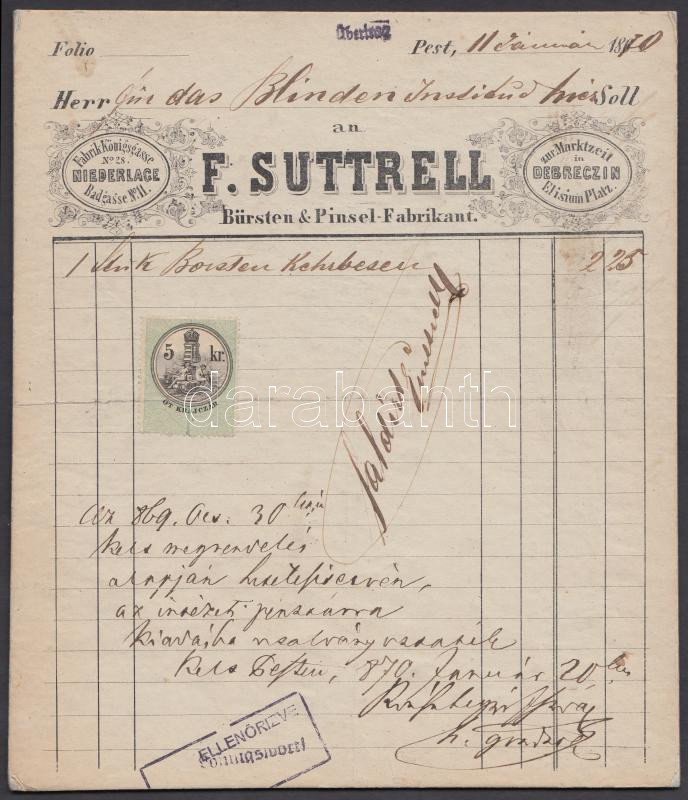 Übertrag
Folio Pest, 11 Januar 1870
Herr für das Blinden Institut hier Soll
an
Fabrik Königsgasse
No 28.
NIEDERLAGE
Badgasse No 11.
F. SUTTRELL
zur Marktzeit
in
DEBRECZIN
Elisium Platz.
Bürsten & Pinsel-Fabrikant.
1 Stük Borsten Kehrbesen 2 25
5 kr.
ÖT KRAJCZÁR
Saldirt
Suttrell
darabanth
Az 869. Dec. 30
kelt megrendelés
alapján
az intézet pénztárra
kiadásba
Kelt Pesten, 870. Január 20
ELLENŐRIZVE